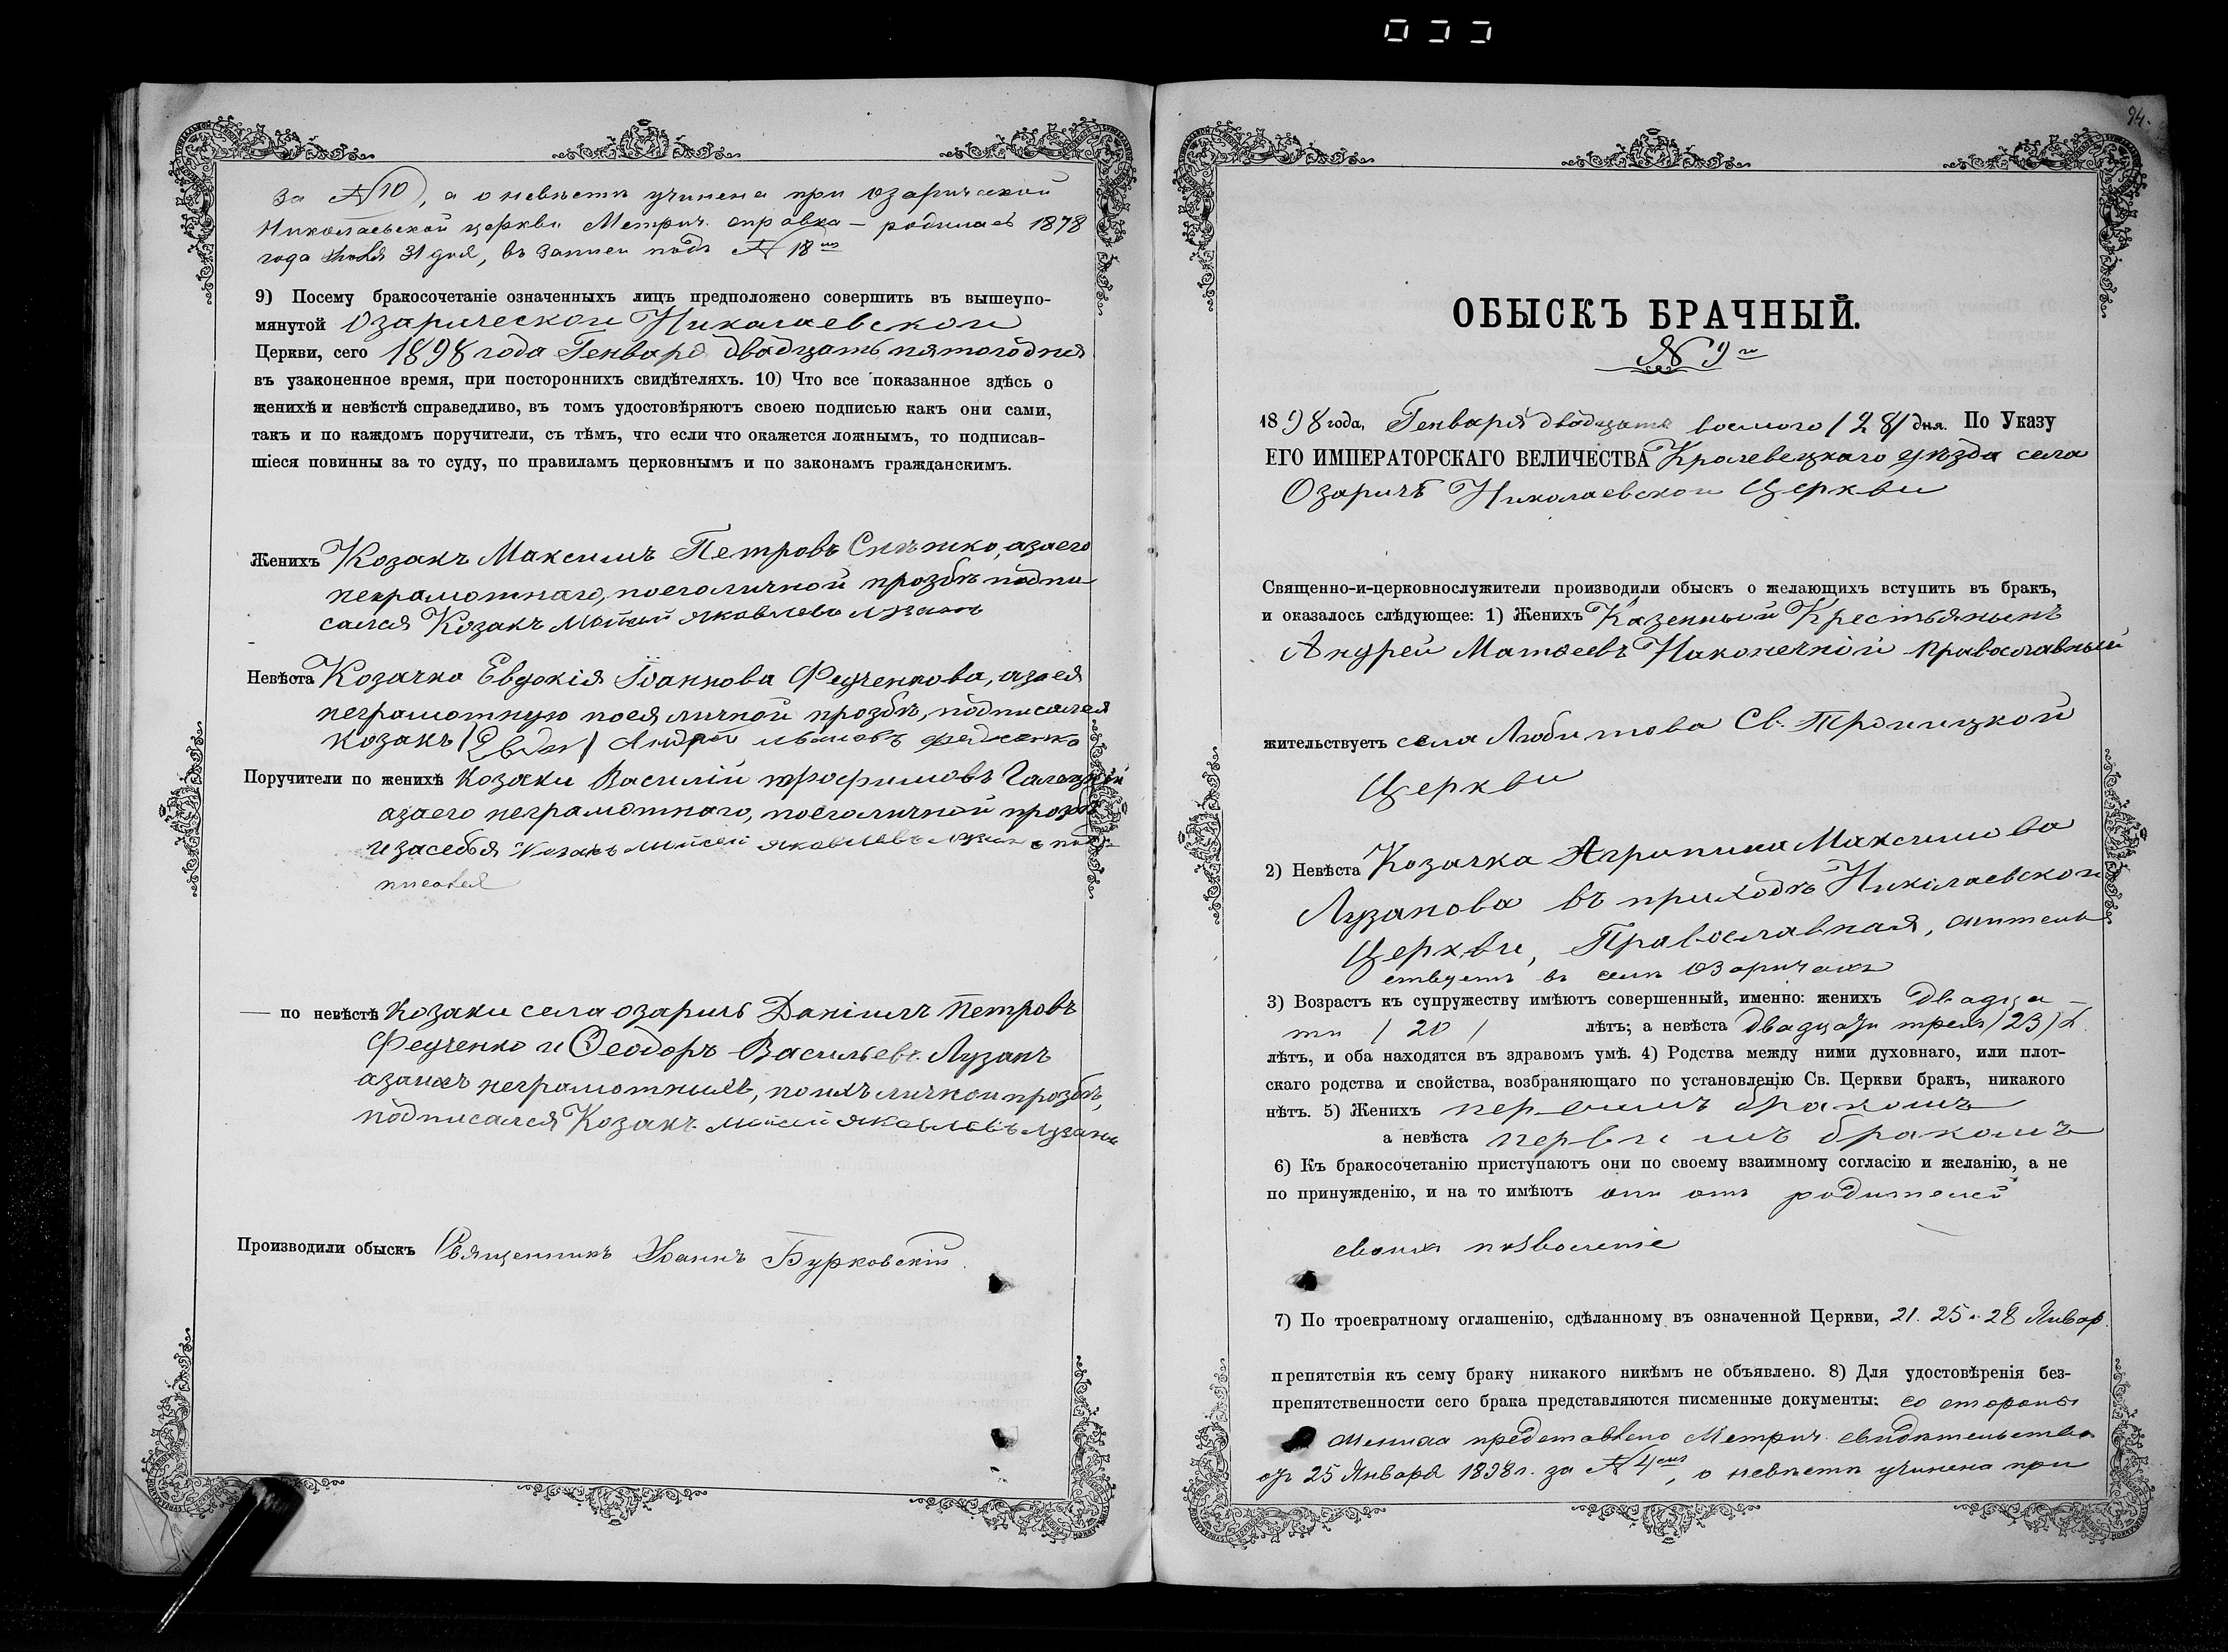 за № 10, а о невѣстѣ учинена при Озарической
Николаевской церкви Метрич. справка – родилась 1878
года 31 дня, въ записи подъ № 18мъ
9) Посему бракосочетаніе означенныхъ лицъ предположено совершить въ вышеупо-
мянутой Озарической Николаевской
Церкви, сего 1898 года Генваря двадцать пятого дня
въ узаконенное время, при постороннихъ свидѣтеляхъ. 10) Что все показанное здѣсь о
женихѣ и невѣстѣ справедливо, въ томъ удостовѣряютъ своею подписью какъ они сами,
такъ и по каждомъ поручители, съ тѣмъ, что если что окажется ложнымъ, то подписав-
шіеся повинны за то суду, по правиламъ церковнымъ и по законамъ гражданскимъ.
Женихъ Козакъ Максимъ Петровъ азаего
неграмотнаго, поеголичной прозбѣ подпи-
сался Козакъ Мойсей Яковлевъ Лузанъ
Невѣста Козачка Евдокія Іоаннова Федченкова, азаея
неграмотную поея личной прозбѣ, подписался
козакъ Андрей Ивановъ Федченко
Поручители по женихѣ козаки Василій трофимовъ Галецкій
азаего неграмотнаго, поеголичной прозбѣ
изасебя Козакъ Мойсей Яковлевъ Лузанъ под-
писался
— по невѣстѣ козаки села озаричъ Даніилъ Петровъ
Федченко и Ѳеодоръ Васильевъ Лузанъ
азаихъ неграмотныхъ, поихъ личной прозбѣ,
подписался Козакъ Мойсей Яковлевъ Лузанъ
Производили обыскъ Священникъ Іоаннъ Бурковскій.
94.
ОБЫСКЪ БРАЧНЫЙ.
№ 9го
1898 года, Генваря двадцать восмого /28/ дня. По Указу
ЕГО ИМПЕРАТОРСКАГО ВЕЛИЧЕСТВА Кролевецкаго уѣзда села
Озаричъ Николаевской Церкви
Священно-и-церковнослужители производили обыскъ о желающихъ вступить въ бракъ,
и оказалось слѣдующее: 1) Женихъ Казенный Крестьянынъ
Андрей Матѳеевъ Наконечній православный
жительствуетъ села Любитова Св. Троицкой
Церкви
2) Невѣста Козачка Агрипина Максимова
Лузанова въ приходѣ Николаевской
Церкви, Православная, житель
ствуетъ въ селѣ Озаричахъ
3) Возрастъ къ супружеству имѣютъ совершенный, именно: женихъ двадца-
ти /20/ лѣтъ; а невѣста двадцати трехъ /23/ л.
лѣтъ, и оба находятся въ здравомъ умѣ. 4) Родства между ними духовнаго, или плот-
скаго родства и свойства, возбраняющаго по установленію Св. Церкви бракъ, никакого
нѣтъ. 5) Женихъ первымъ бракомъ
а невѣста первымъ бракомъ
6) Къ бракосочетанію приступаютъ они по своему взаимному согласію и желанію, а не
по принужденію, и на то имѣютъ они отъ родителей
своихъ позволеніе
7) По троекратному оглашенію, сдѣланному въ означенной Церкви, 21. 25 и 28 Январ.
препятствія къ сему браку никакого никѣмъ не объявлено. 8) Для удостовѣренія без-
препятственности сего брака представляются писменные документы: со стороны
жениха представлено Метрич. свидѣтельство
отъ 25 Января 1898 г. за № 4мъ, о невѣстѣ учинена при